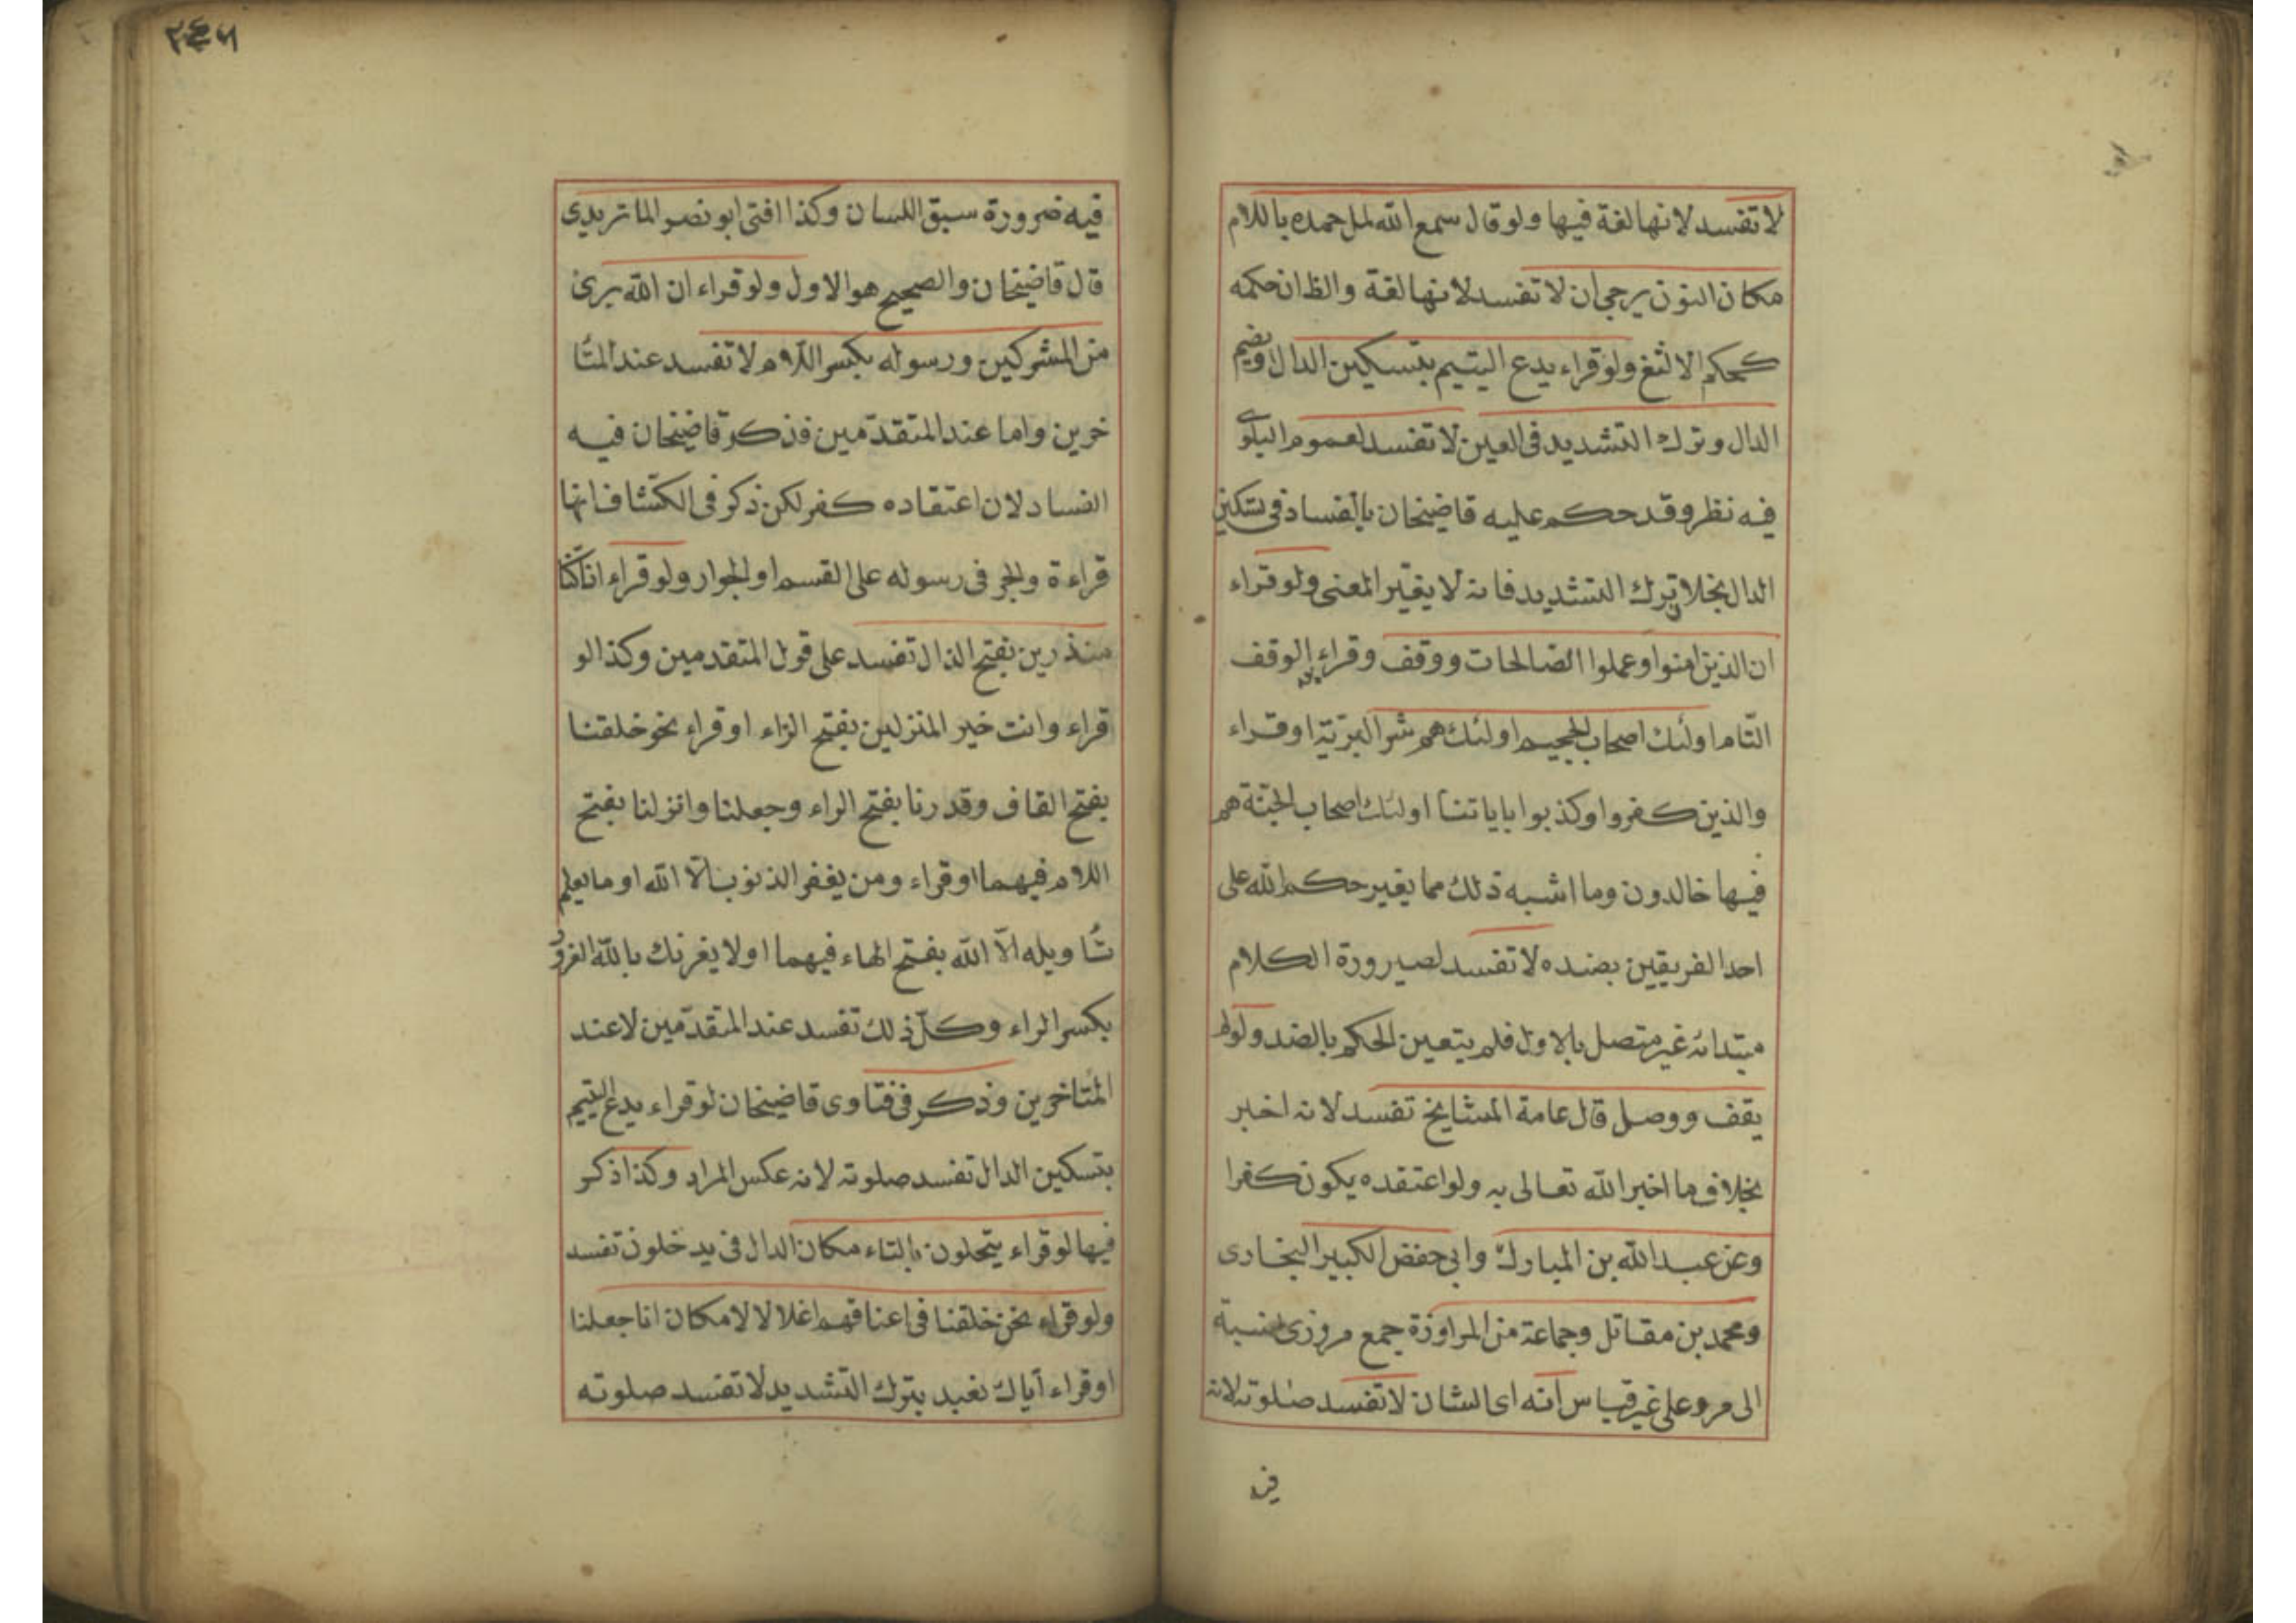 لا تفسد لانها لغة فيها ولو قال سمع الله لمل حمده باللام
مكان النون يرجى ان لا تفسد لانها لغة والظ ان حكمه
كحكم الالثغ ولو قراء يدع اليتيم بتسكين الدال او بضم
الدال وترك التشديد فى العين لا تفسد لعموم البلوى
فيه نظر وقد حكم عليه قاضيخان بالفساد فى تسكين
الدال بخلاف ترك التشديد فانه لا يغير المعنى ولو قراء
ان الذين امنوا وعملوا الصالحات ووقف وقراء بعد الوقف
التام اولئك اصحاب الجحيم اولئك هم شر البرية او قراء
والذين كفروا وكذبوا باياتنا اولئك اصحاب الجنة هم
فيها خالدون وما اشبه ذلك مما يغير حكم الله على
احد الفريقين بضده لا تفسد لصيرورة الكلام
مبتدائه غير متصل بالاول فلم يتعين الحكم بالضد ولو لم
يقف ووصل قال عامة المشايخ تفسد لانه اخبر
بخلاف ما اخبر الله تعالى به ولو اعتقده يكون كفرا
وعن عبد الله بن المبارك وابى حفض الكبير البخارى
ومحمد بن مقاتل وجماعة من المراوزة جمع مروزى نسبة
الى مرو على غير قياس انه اى الشان لا تفسد صلوته لانه
فى
٢٤٦
فيه ضرورة سبق اللسان وكذا افتى ابو نصر الماتريدى
قال قاضيخان والصحيح هو الاول ولو قراء ان الله برئ
من المشركين ورسوله بكسر اللام لا تفسد عند المتا
خرين واما عند المتقدمين فذكر قاضيخان فيه
الفساد لان اعتقاده كفر لكن ذكر فى الكشاف انها
قراءة والجر فى رسوله على القسم او الجوار ولو قراء انا كنا
منذرين بفتح الذال تفسد على قول المتقدمين وكذا لو
قراء وانت خير المنزلين بفتح الزاء او قراء نحو خلقنا
بفتح القاف وقدرنا بفتح الراء وجعلنا وانزلنا بفتح
اللام فيهما او قراء ومن يغفر الذنوب الا الله او ما يعلم
تاويله الا الله بفتح الهاء فيهما او لا يغرنك بالله الغرور
بكسر الراء وكل ذلك تفسد عند المتقدمين لا عند
المتاخرين وذكر فى فتاوى قاضيخان لو قراء يدع اليتيم
بتسكين الدال تفسد صلوته لانه عكس المراد وكذا ذكر
فيها لو قراء يتخلون بالتاء مكان الدال فى يدخلون تفسد
ولو قراء نحن خلقنا فى اعناقهم اغلالا لا مكان انا جعلنا
او قراء اياك نعبد بترك التشديد لا تفسد صلوته